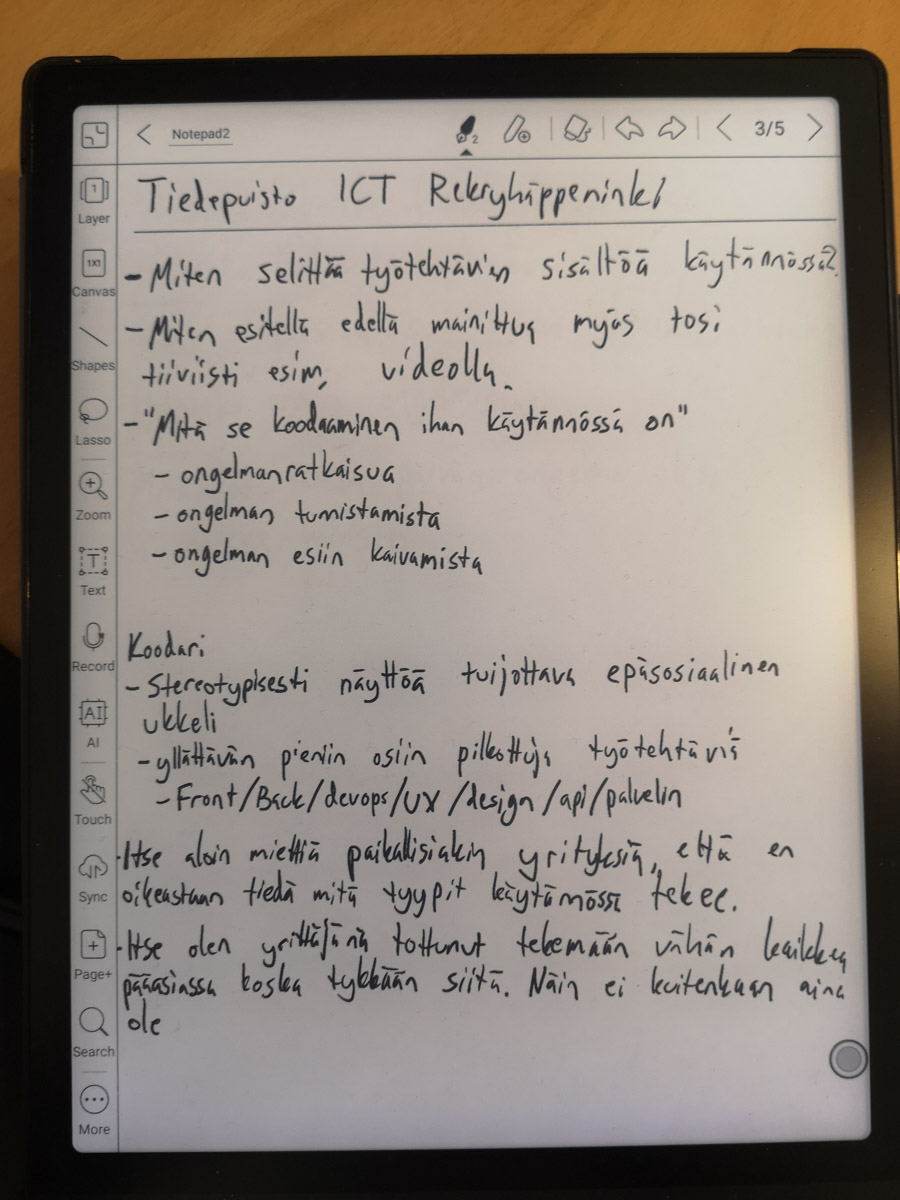 Notepad2
3/5
1
Layer
1X1
Canvas
Shapes
Lasso
Zoom
T
Text
Record
AI
AI
Touch
Sync
Page+
Search
More
Tiedepuisto ICT Rekryhäppeninki
- Miten selittää työtehtävien sisältöä käytännössä?
- Miten esitellä edellä mainittua myös tosi
tiiviisti esim. videolla.
- "Mitä se koodaaminen ihan käytännössä on"
- ongelmanratkaisua
- ongelman tunnistamista
- ongelman esiin kaivamista
Koodari
- Stereotypisesti näyttöä tuijottava epäsosiaalinen
ukkeli
- yllättävän pieniin osiin pilkottuja työtehtäviä
- Front/Back/devops/UX/design/api/palvelin
· Itse aloin miettiä paikallisiakin yrityksiä, että en
oikeastaan tiedä mitä tyypit käytännössä tekee.
· Itse olen yrittäjänä tottunut tekemään vähän kaikkea
pääasiassa koska tykkään siitä. Näin ei kuitenkaan aina
ole